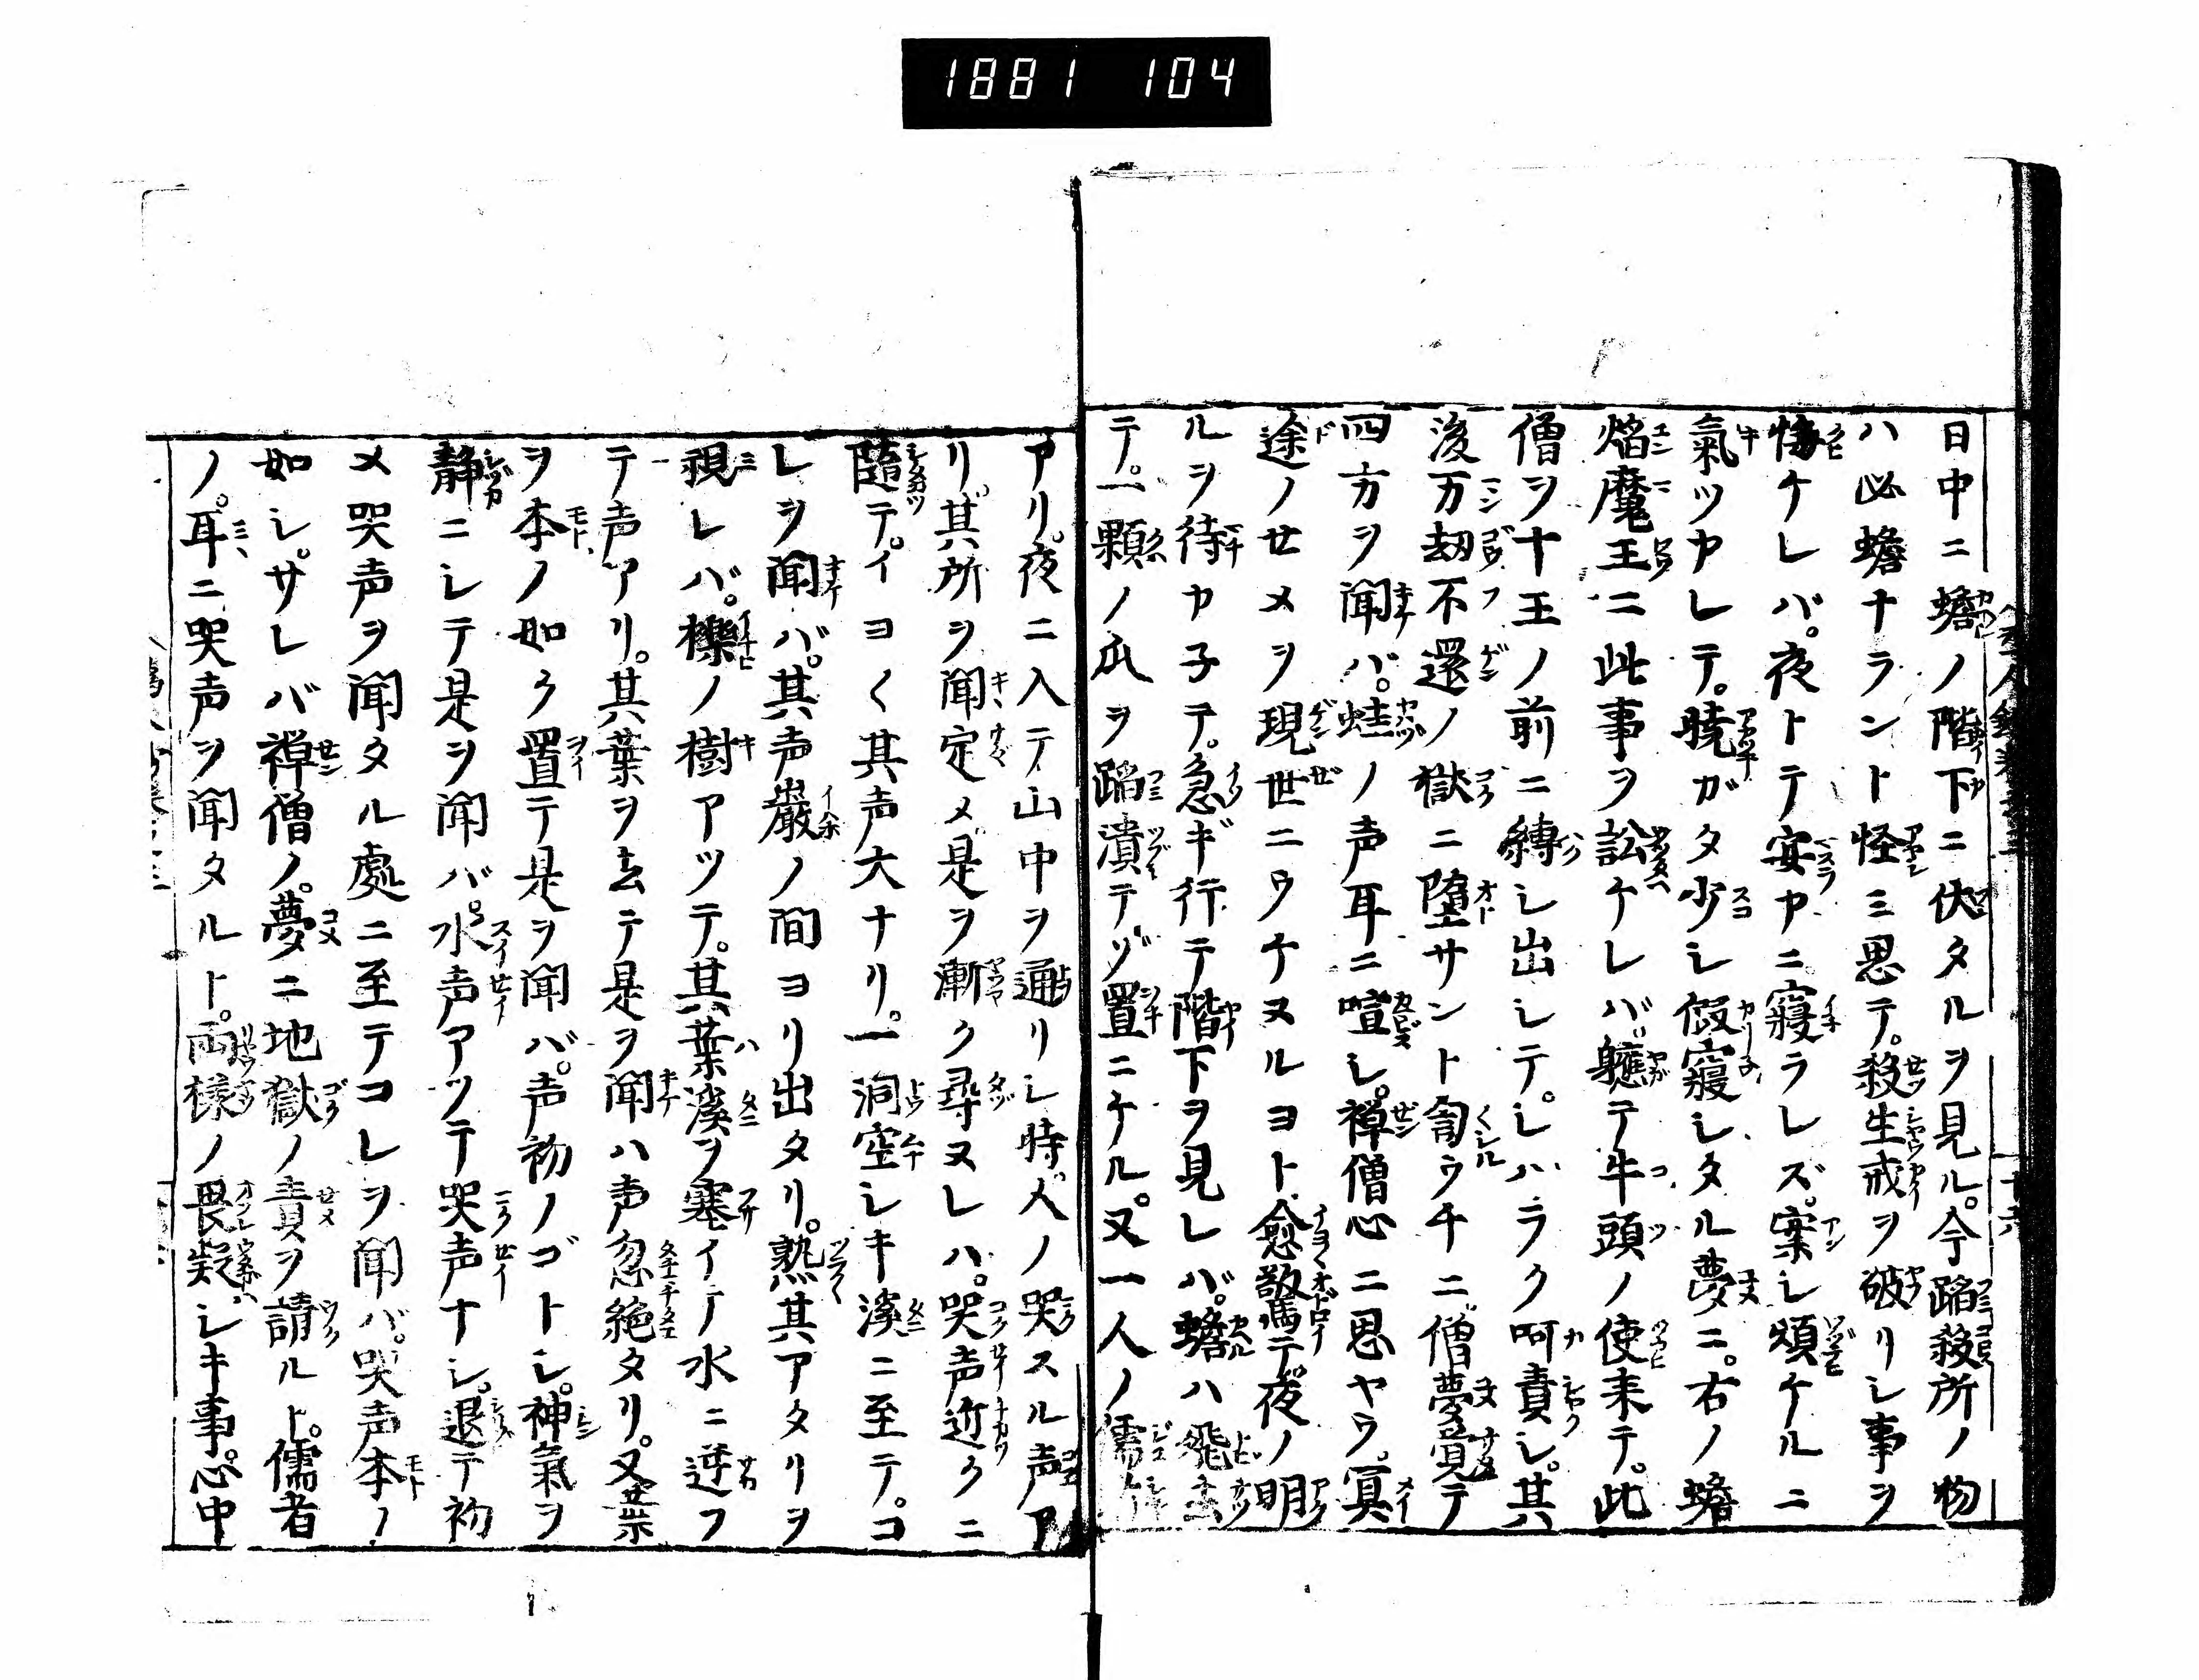 1881 104
日中ニ蟾ノ階下ニ伏タルヲ見ル。今蹈殺所ノ物
ハ必蟾ナラント怪ミ思テ。殺生戒ヲ破リシ事ヲ
悔ケレバ。夜トテ安ヤニ寢ラレズ。案シ煩ケルニ
氣ツカレテ。暁ガタ少シ假寢シタル夢ニ。右ノ蟾
焔魔王ニ此事ヲ訟ケレバ。軈テ牛頭ノ使来テ。此
僧ヲ十王ノ前ニ縛シ出シテ。シハラク呵責シ。其
後万劫不還ノ獄ニ墮サント訇ウチニ。僧夢覚テ
四方ヲ聞バ。蛙ノ声耳ニ喧シ。禅僧心ニ思ヤウ。冥
途ノセメヲ現世ニウケヌルヨト。愈驚テ。夜ノ明
ルヲ待カ子テ。急ギ行テ階下ヲ見レバ。蟾ハ飛去
テ。一顆ノ瓜ヲ蹈潰テゾ置ニケル。又一人ノ儒
アリ。夜ニ入テ山中ヲ通リシ時。人ノ哭スル声ア
リ。其所ヲ聞定メ是ヲ漸ク尋ヌレハ。哭声近クニ
隨テ。イヨ〱其声大ナリ。一洞空シキ溪ニ至テ。コ
レヲ聞バ。其声巌ノ間ヨリ出タリ。熟其アタリヲ
視レバ。櫟ノ樹アツテ。其葉溪ヲ塞イテ水ニ逆フ
テ声アリ。其葉ヲ去テ是ヲ聞ハ声忽絶タリ。又葉
ヲ本ノ如ク置テ是ヲ聞バ。声初ノゴトシ。神氣ヲ
静ニシテ是ヲ聞バ。水声アツテ哭声ナシ。退テ初
メ哭声ヲ聞タル處ニ至テコレヲ聞バ。哭声本ノ
如シ。サレバ禅僧ノ。夢ニ地獄ノ責ヲ請ルト。儒者
ノ。耳ニ哭声ヲ聞タルト。両様ノ畏疑シキ事。心中